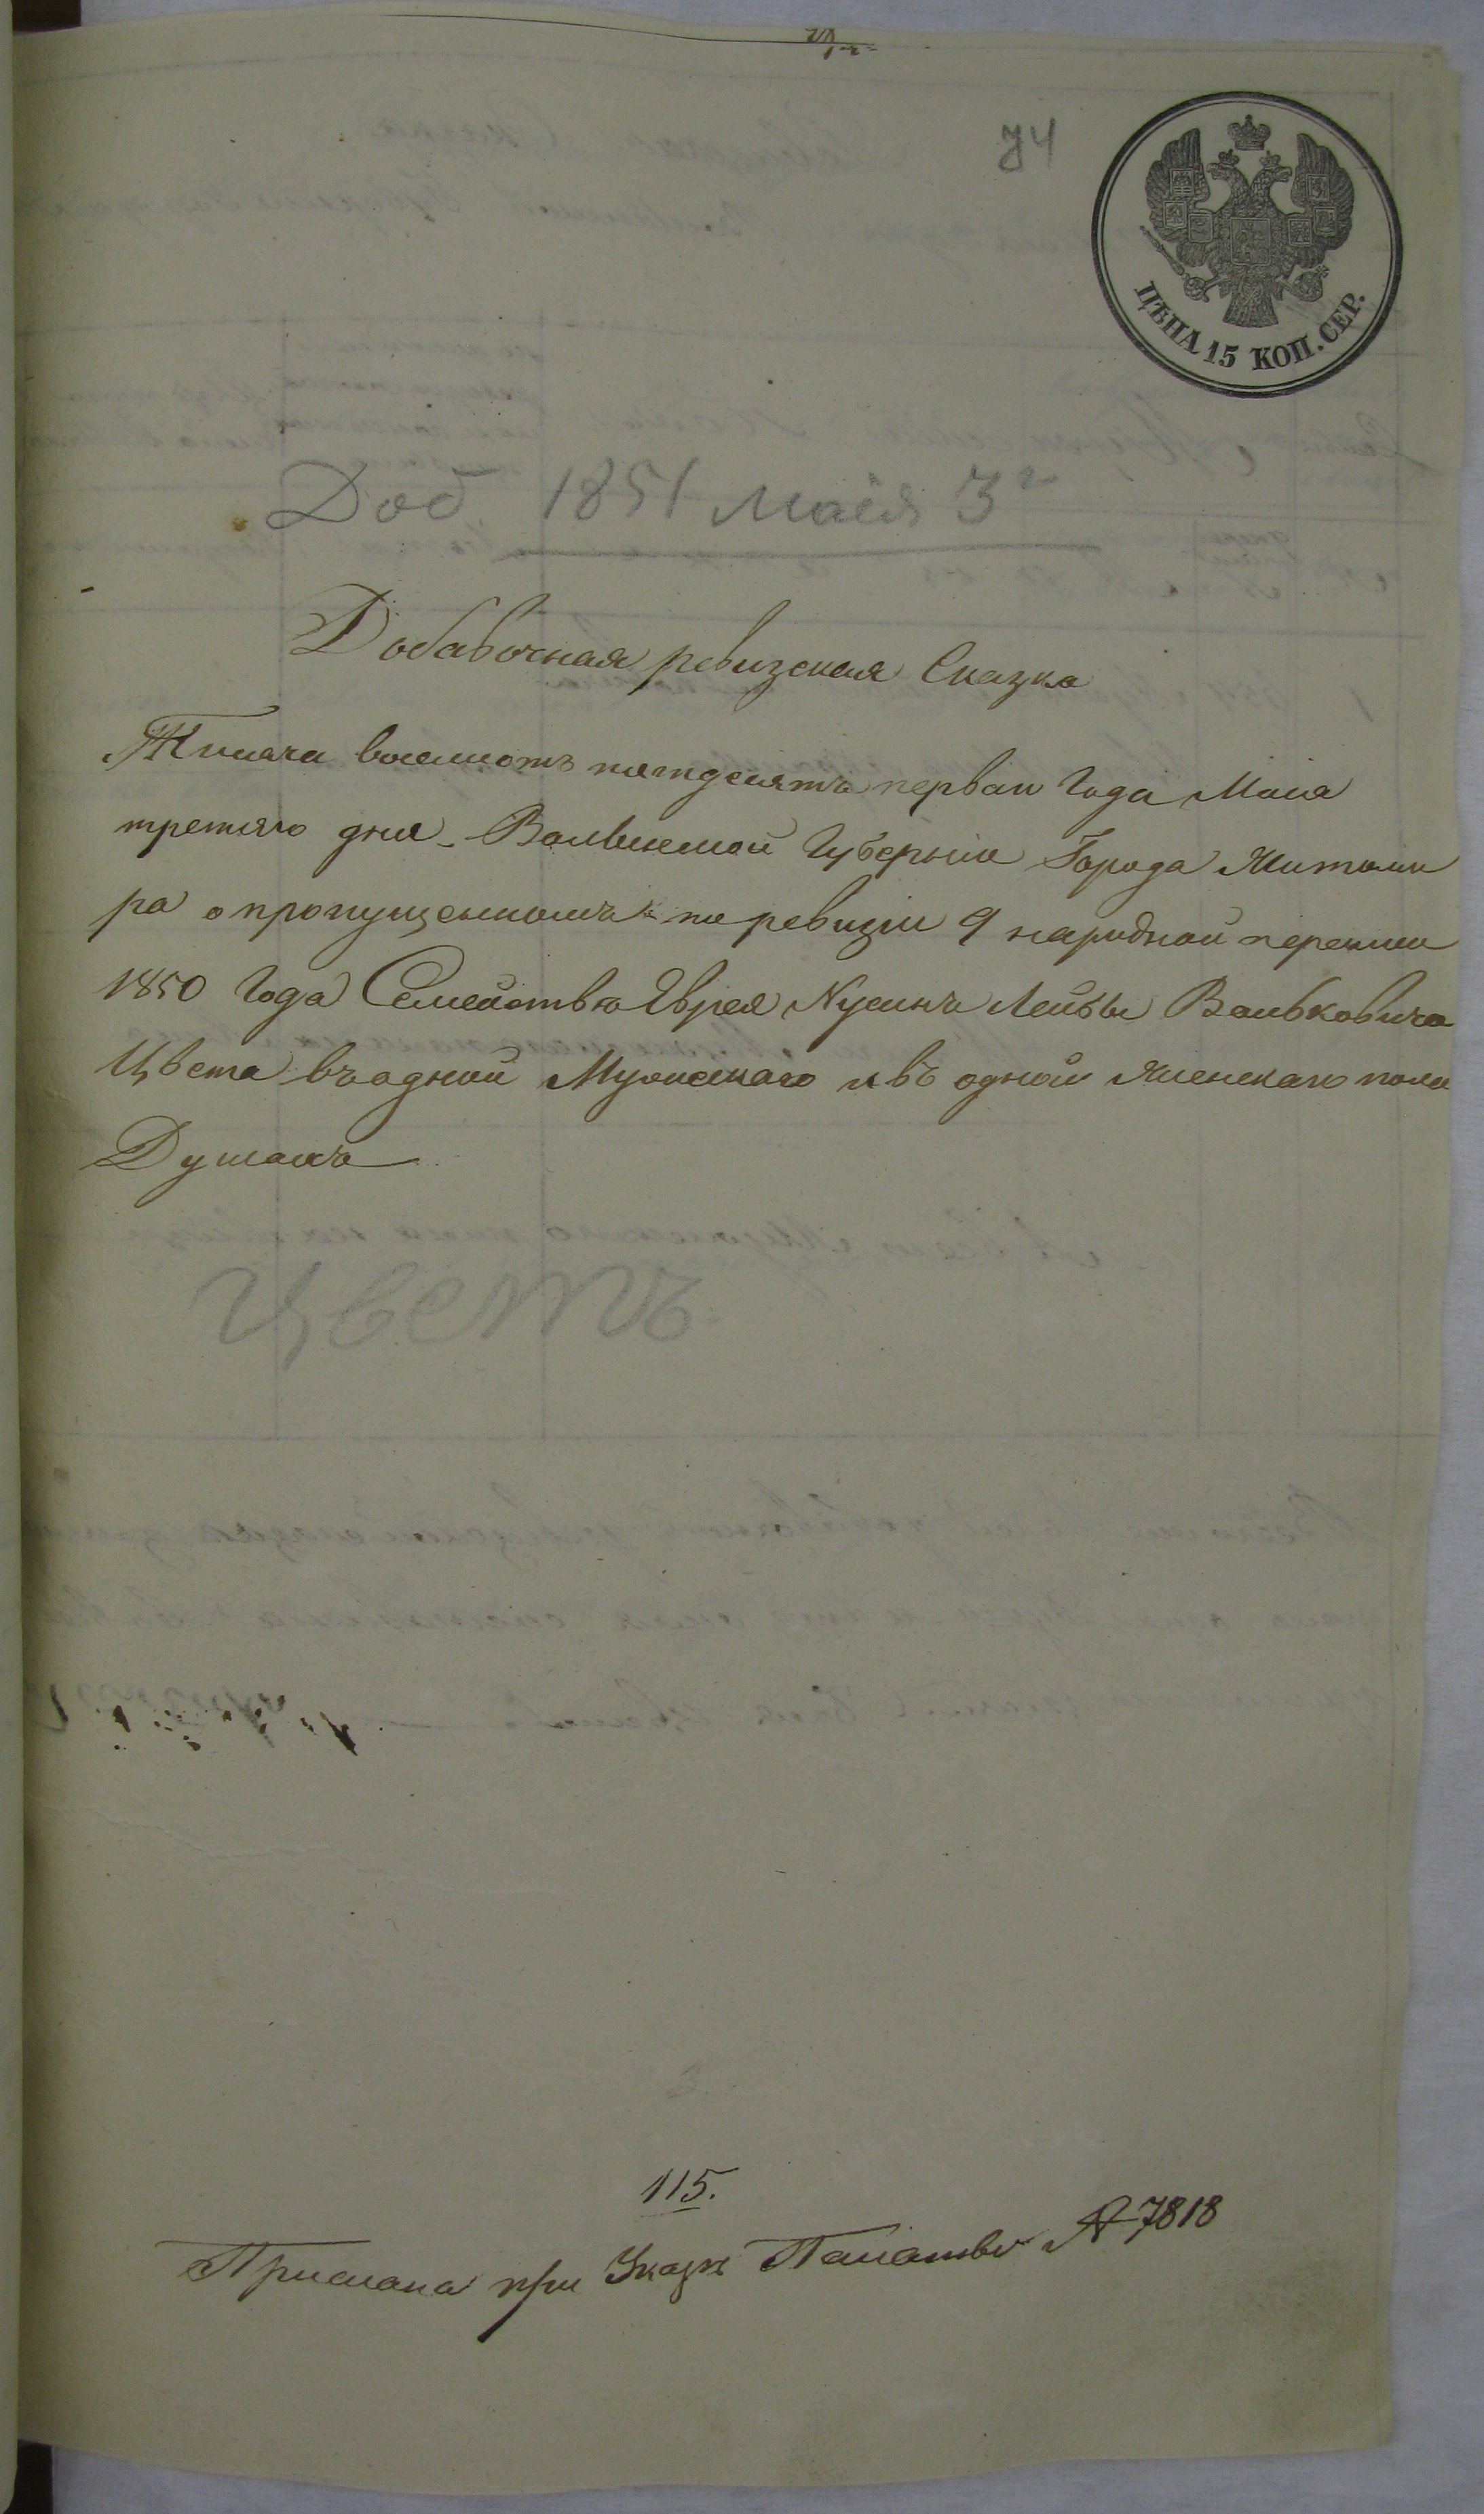 74
ЦѢНА 15 КОП. СЕР.
Доб. 1851 Маія 3г
Добавочная ревизская Сказка
Тысяча восемсотъ пятдесятъ первац Года Маія
третяго дня Волынской Губерніи Города Житоми
ра о пропущенномъ по ревизіи 9 народной переписи
1850 Года Семействю Еврея Нусинъ Лейбы Вольковича
Цвета въ одной Мужескаго и въ одной женскаго пола
Душахъ
Цветъ
115.
Прислана при Указѣ Палаты № 7818